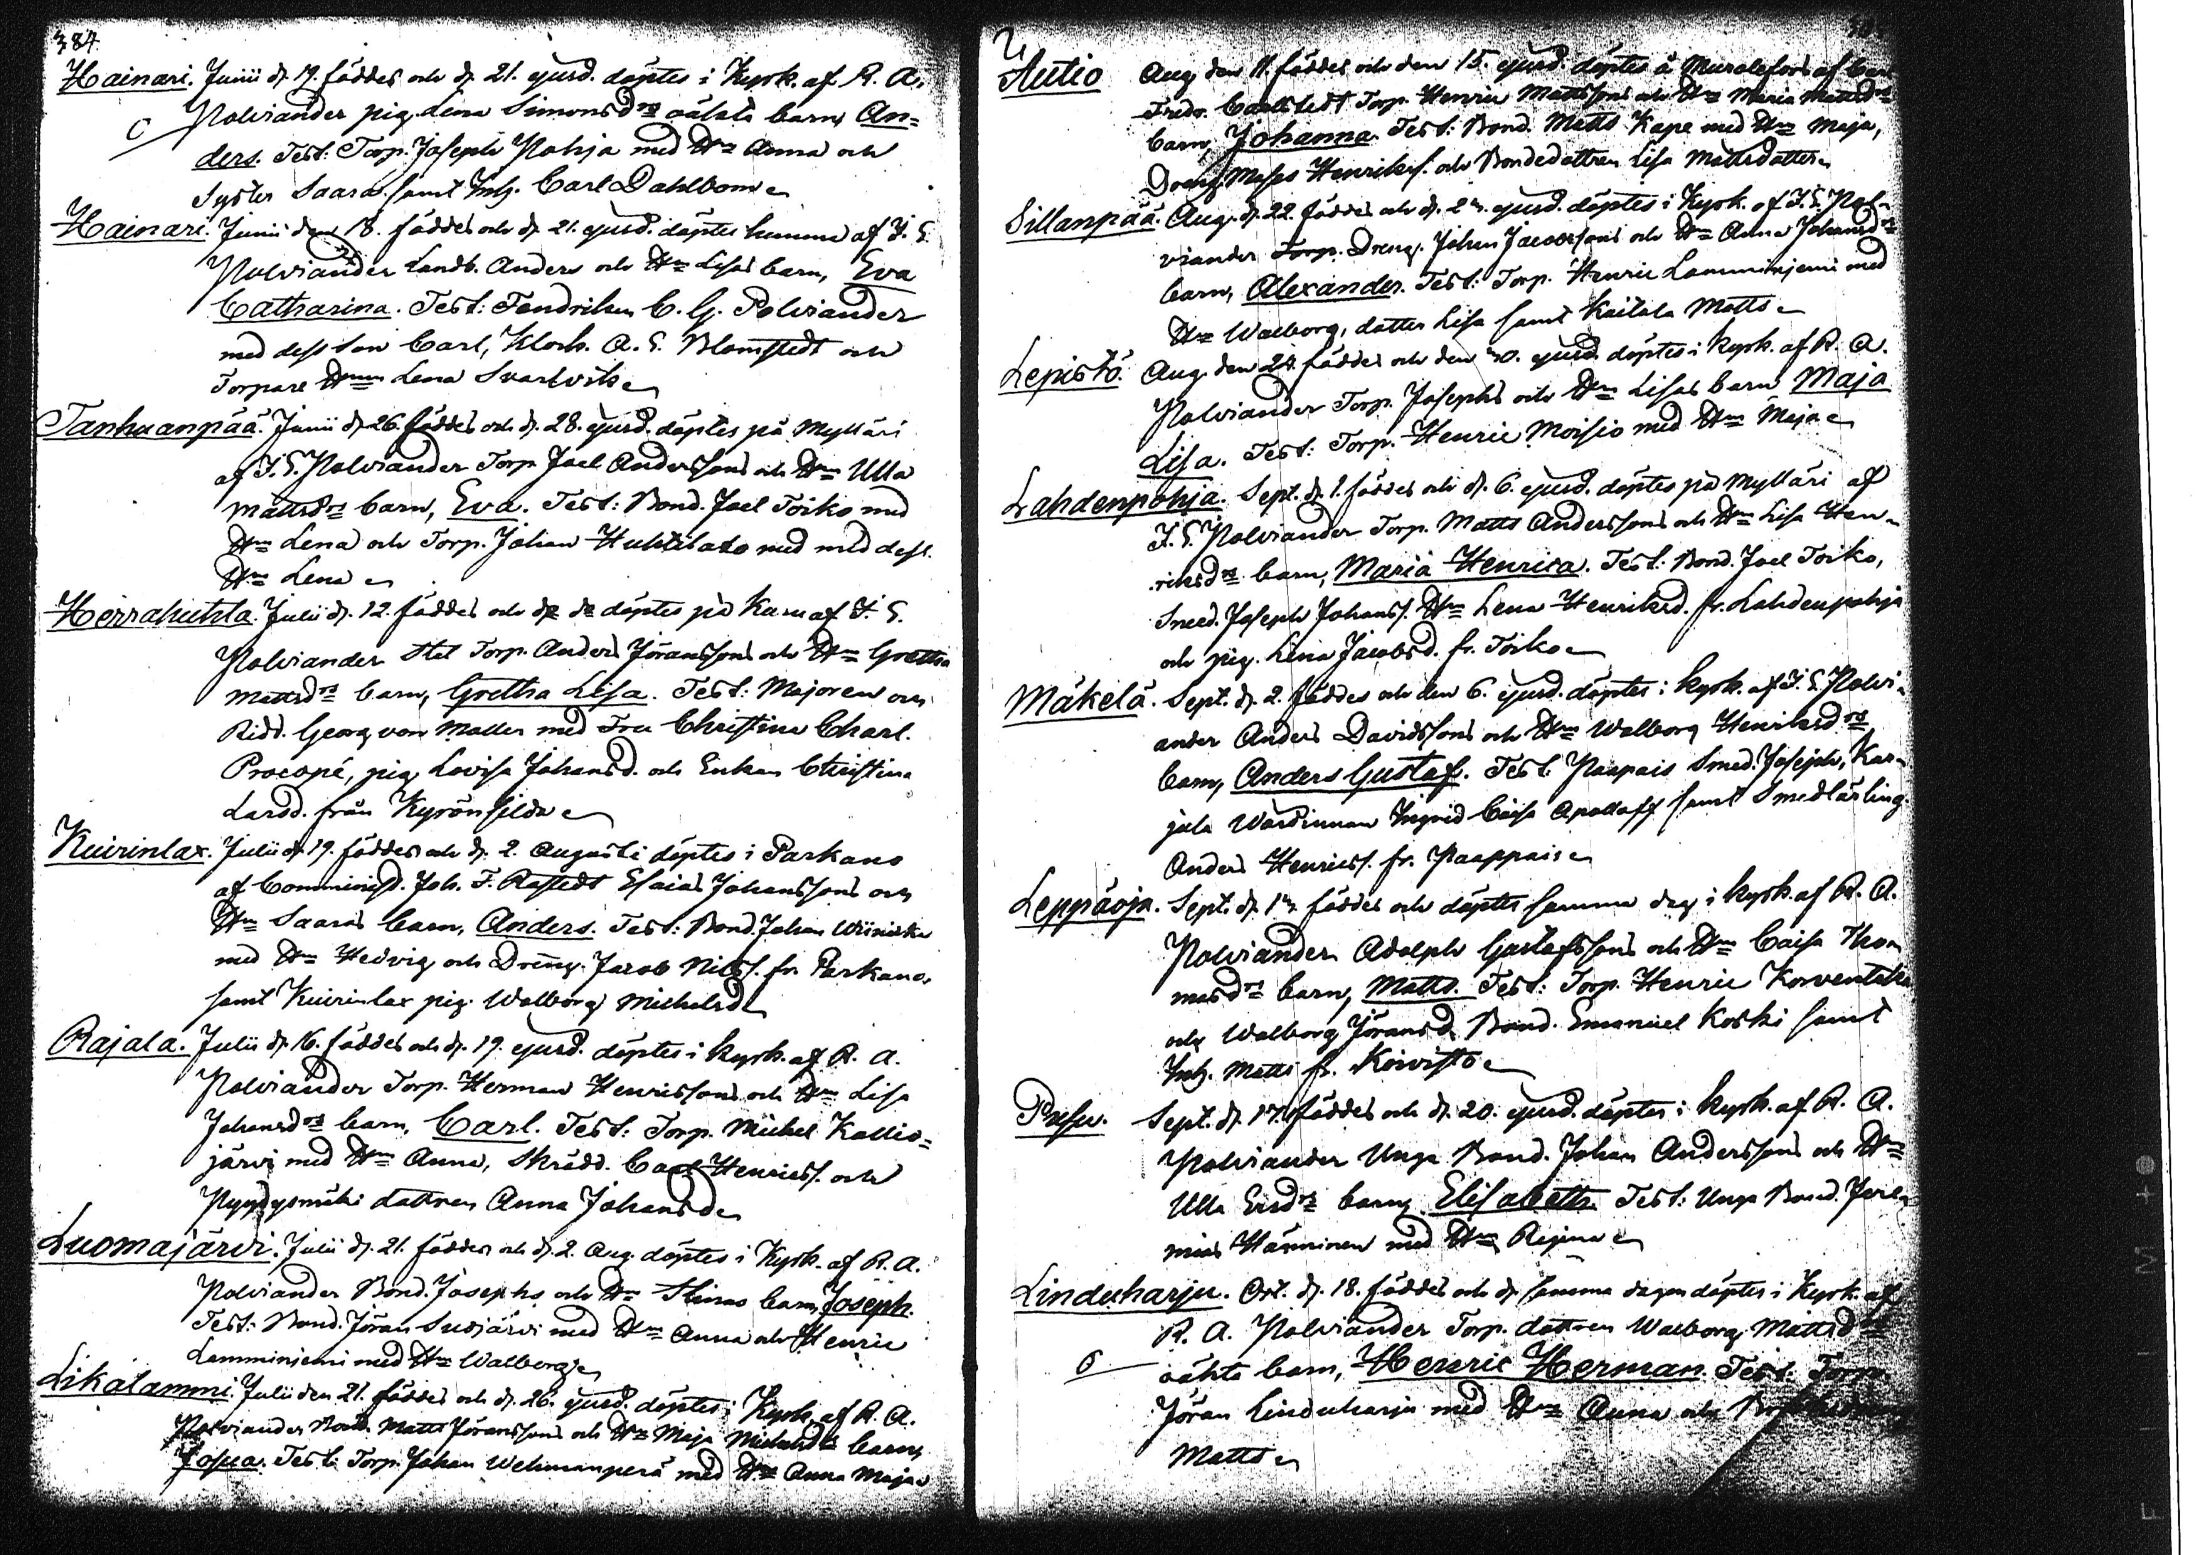 384.
Hainari. Junii d. 19. föddes och d. 21. ejusd. döptes i Kyrk. af R. A.
Polviander pig. Lena Simonsdrs oäkta barn, An=
ders. Test: Torp. Joseph Pohja med Hu Anna och
Syster Saara samt Inh. Carl Dahlbom
Hainari. Junii den 18. föddes och d. 21. ejusd. döptes hemma af J. E.
Polviander Landb. Anders och Hu Lisas barn, Eva
Catharina. Test: Fendriken C. G. Polviander
med dess son Carl, Klock. A. E. Blomstedt och
Torpare Hun Lena Svartvik
Tanhuanpää. Junii d. 26. föddes och d. 28. ejusd. döptes på Mylläri
af J. E. Polviander Torp. Joel Anderssons och Hu Ulla
Mattsdrs barn, Eva. Test: Bond. Joel Toiko med
Hu Lena och Torp. Johan Huhtilato med med dess
Hu Lena
Herrahuhta. Julii d. 12. föddes och do do döptes på Karu af J. E.
Polviander Stat Torp. Anders Jöranssons och Hu Gretha
Mattsdrs barn, Gretha Lisa. Test: Majoren och
Ridd. Georg von Moller med Fru Christina Charl.
Procopé, pig. Lovisa Johansd. och Enkan Christina
Larsd. från Kyrönsilda
Kuirinlax. Julii d. 19. föddes och d. 2. Augusti döptes i Parkano
af Comminist. Joh. F. Rastedt Esaias Johanssons och
Hu Saaras barn, Anders. Test: Bond. Johan Wiinikka
med Hu Hedvig och Dreng. Jacob Nilss. fr. Parkano
samt Kuirinlax pig. Walborg Michelsd
Rajala. Julii d. 16. föddes och d. 19. ejusd. döptes i Kyrk. af R. A.
Polviander Torp. Herman Henrissons och Hu Lisa
Johansdrs barn, Carl. Test: Torp. Michel Kallio=
järvi med Hu Anna, Skrädd. Carl Henricss. och
Pyydysmäki dottren Anna Johansd
Luomajärvi. Julii d. 21. föddes och d. 2. Aug. döptes i Kyrk. af R. A.
Polviander Bond. Josephs och Hu Stinas barn, Joseph.
Test: Bond. Jöran Susijärvi med Hu Anna och Henric
Lamminjemi med Hu Walborg
Likalammi. Julii den 21. föddes och d. 26. ejusd. döptes i Kyrk. af R. A.
Polviander Bond. Matts Jöranssons och Hu Maja Michelsdrs barn,
Josua. Test: Torp. Johan Wehmanperä med Hu Anna Maja
Autio Aug. den 11. föddes och den 15. ejusd. döptes å Muralefors af
Fredr. Carlstedt Torp. Henric Mattssons och Hu Maria Mattsdrs
barn, Johanna. Test: Bond. Matts Kape med Hu Maja,
Dreng. Henrikss. och Bondedottren Lisa Mattsdotter
Sillanpää. Aug. d. 22. föddes och d. ejusd. döptes i Kyrk. af J. E. Pol-
viander Torp. Dreng. Johan Jacobssons och Hu Anna Johansdrs
barn, Alexander. Test: Torp. Henric Lamminjemi med
Hu Walborg, dotter Lisa samt Kaitala Matts
Lepistö. Aug. den 24. föddes och den 30. ejusd. döptes i Kyrk. af R. A.
Polviander Torp. Josephs och Hu Lisas barn Maja
Lisa. Test: Torp. Henric Moisio med Hu Maja
Lahdenpohja. Sept. d. 1. föddes och d. 6. ejusd. döptes på Mylläri af
J. E. Polviander Torp. Matts Anderssons och Hu Lisa Hen-
riksdrs barn, Maria Henrica. Test: Bond. Joel Toiko,
Smed. Joseph Johanss. Hu Lena Henriksd. fr. Lahdenpohja
och pig. Lena Jacobsd. fr. Toiko
Mäkelä. Sept. d. 2. föddes och den 6. ejusd. döptes i Kyrk. af J. E. Polvi-
ander Anders Davidssons och Hu Walborg Henriksdrs
barn, Anders Gustaf. Test: Paapais Smed. Joseph, Kar-
jula Wärdinnan Ingrid Caisa Apolloff samt Smedlärling.
Anders Henricss. fr. Paappais
Leppäoja. Sept. d. föddes och döptes samma dag i Kyrk. af R. A.
Polviander Adolph Gustafssons och Hu Caisa Tho-
masdrs barn, Matts. Test: Torp. Henric Korventaka
och Walborg Jöransd. Bond. Emanuel Koski samt
Inh. Matts fr. Koivisto
Pesu. Sept. d. 17. föddes och d. 20. ejusd. döptes i Kyrk. af R. A.
Polviander Unga Bond. Johan Anderssons och Hu
Ulla Ersdrs barn, Elisabeth. Test: Unga Bond. Jere-
mias Hänninen med Hu Regina
Linduharju. Oct. d. 18. föddes och d. samma dagen döptes i Kyrk. af
R. A. Polviander Torp. dottren Walborg Mattsdrs
oäkta barn, Henric Herman. Test: Torp.
Jöran Linduharju med Hu Anna och
Matts